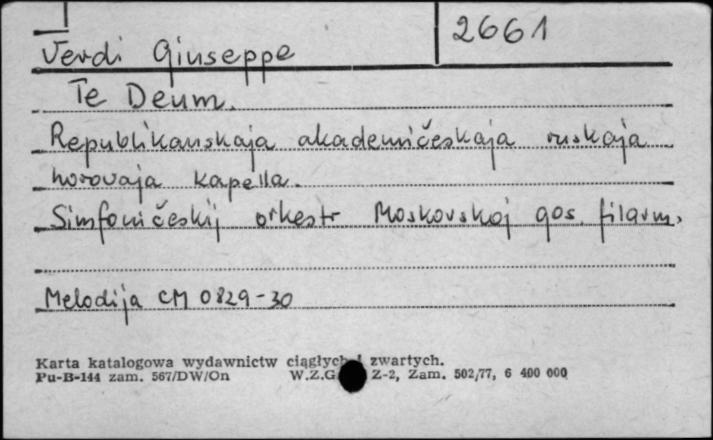 2661
Verdi Giuseppe
Te Deum.
Republikanskaja akademičeskaja ruskaja
horovaja kapella.
Simfoničeskij orkestr Moskovskoj gos. filarm.
Melodija CM 0829-30
Karta katalogowa wydawnictw ciągłych i zwartych.
Pu-B-144 zam. 567/DW/On W.Z.G. Z-2, Zam. 502/77, 6 400 000